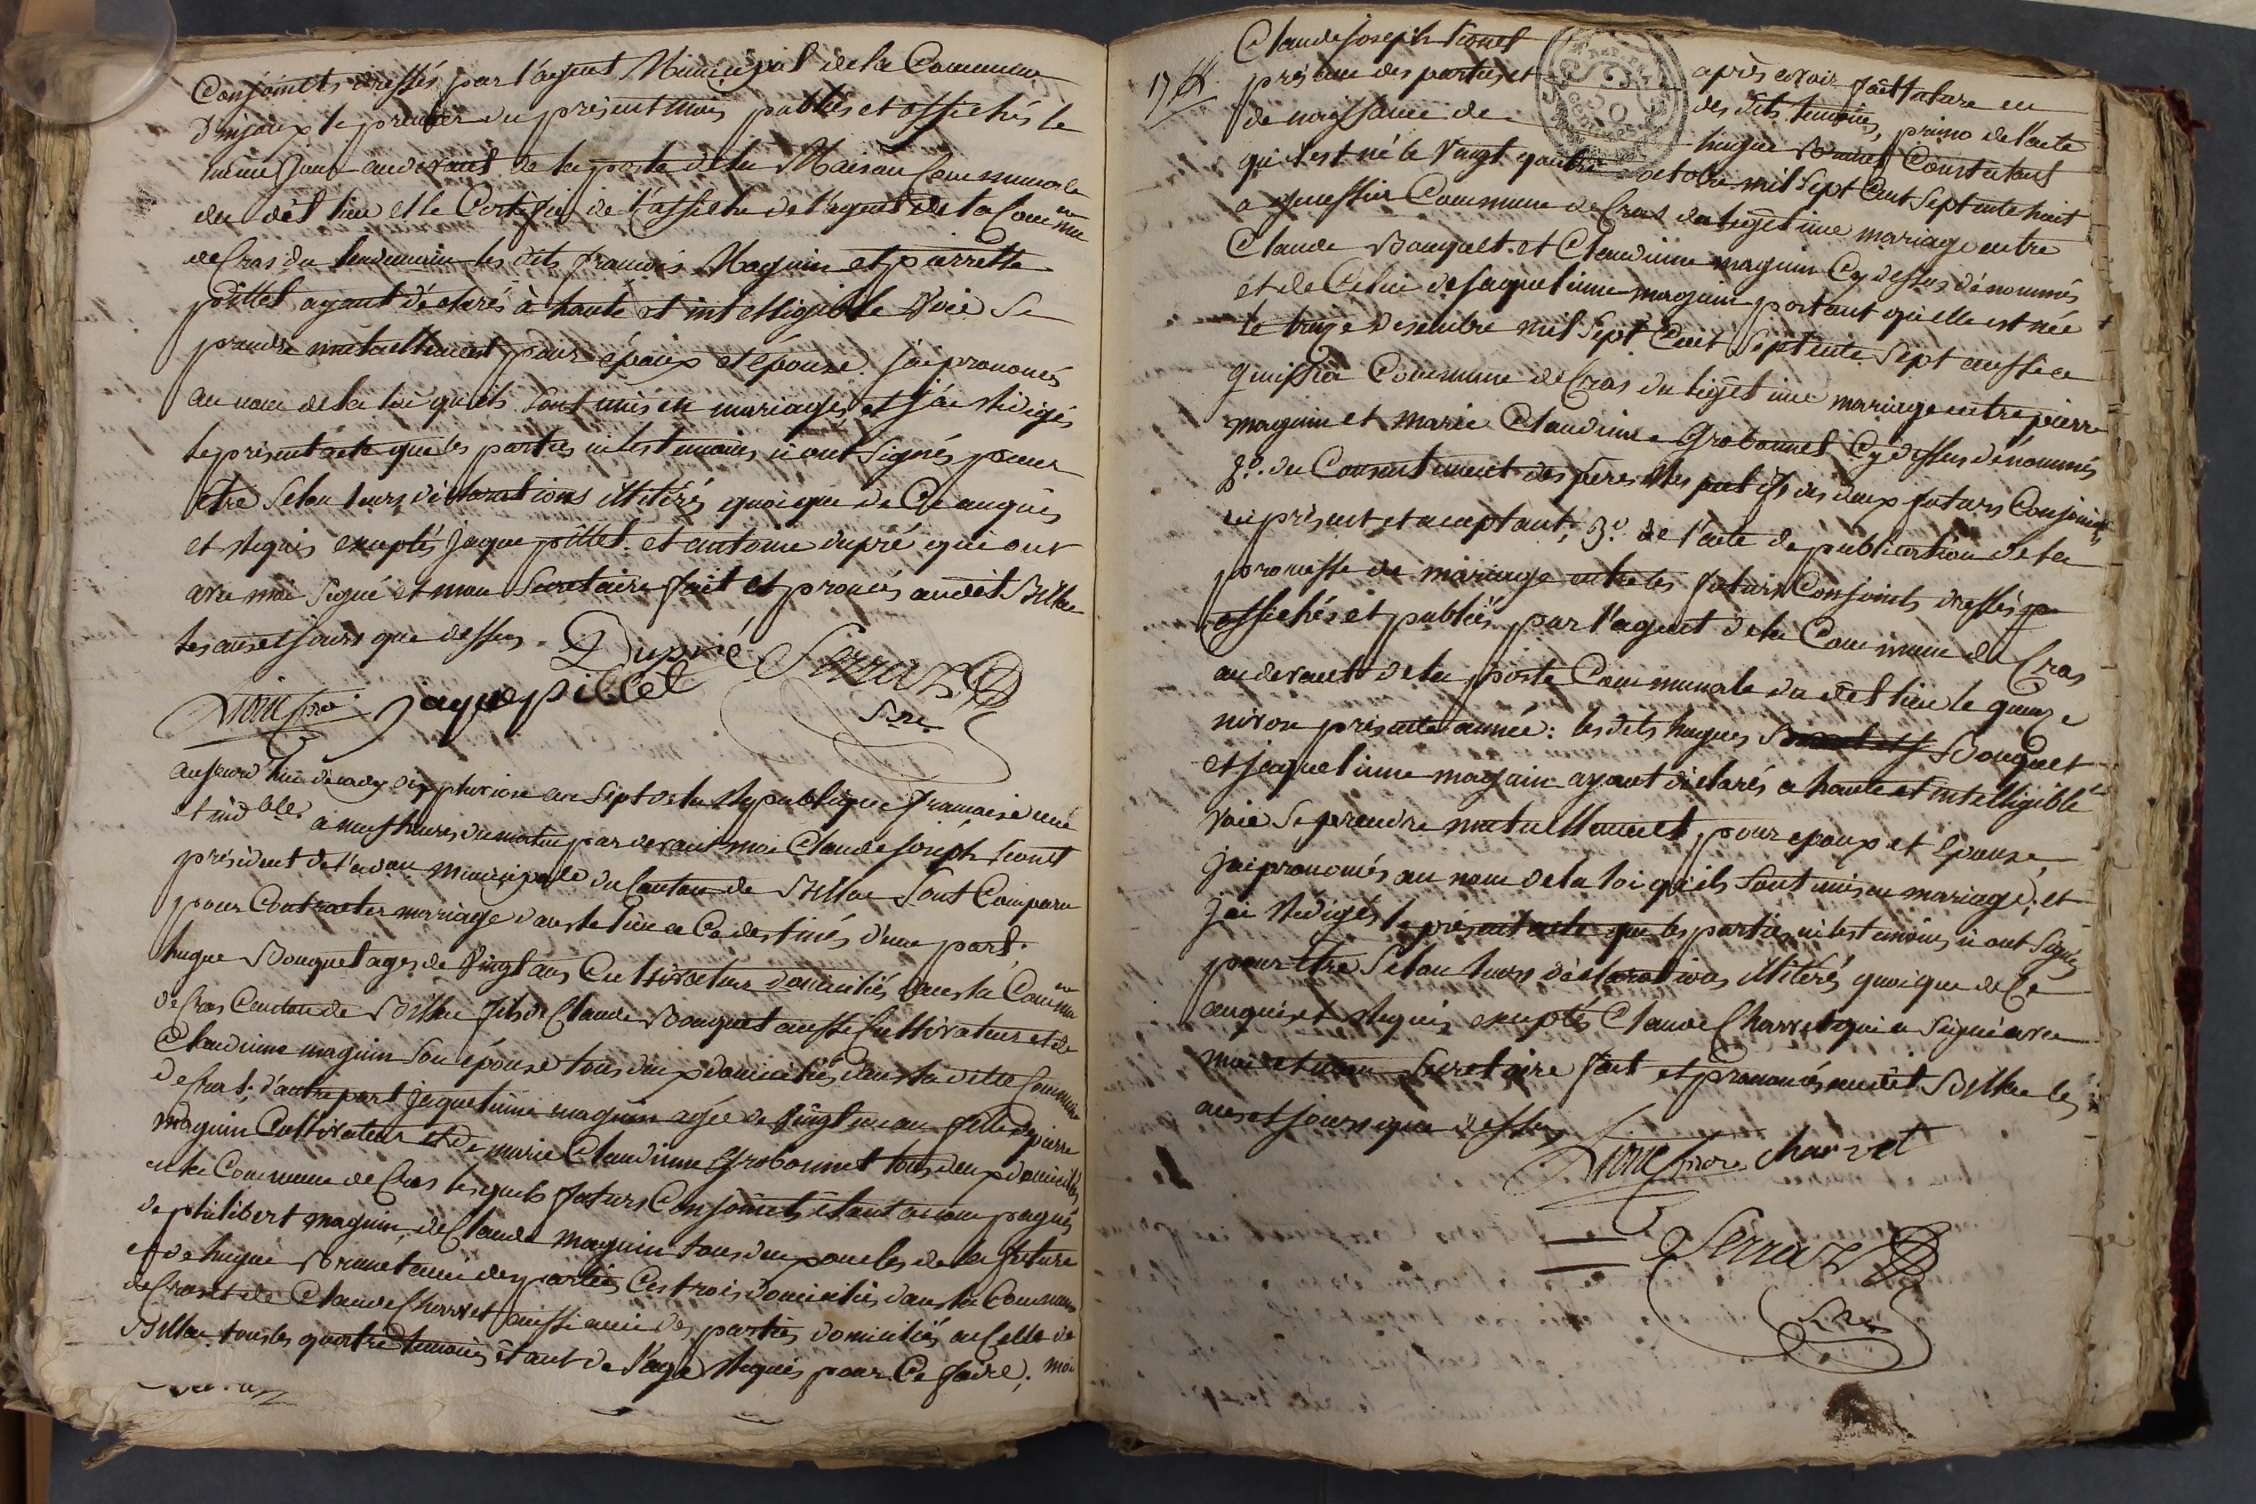 Conjoints dressés par l'agent Municipal de la Commune
D'injoux le premier du présent mois publiés et affichés le
même jour au devant de la porte de la Maison Communale
du dêt lieu et le Certificat de l'affiche de l'agent de la Commune
de Cras du lendemain les dits françois Maguin et pierrette
pillet ayant déclarés à haute et intelligible Voie Se
prendre mutuellement pour époux et épouse. j'ai prononcés
au nom de la loi qu'ils sont unis en mariages, et j'ai rédigés
le présent acte que les parties ni les temoins n'ont signés pour
être Selon leurs déclarations illitérés quoique de Ce anquis
et réquis exceptés jaque pillet et antoine dupré qui ont
avec moi Signé et mon Secretaire fait et pronocés audit Billiac
les ans et jours que dessus. Dupré Serraz
jaque pillet Sre
aujourd'hui décady dix pluviose an Sept de la République francaise une
et indble. a neuf heures du matin par devant moi Claude joseph
président de l'adon municipale du Canton de Billiac Sont Comparu
pour Contracter mariage dans le lieu a Ce destinés d'une part;
hugue Bouquet ages de Vingt ans Cultivateur domiciliés dans la Commune
de Cras Canton de Billiac fils de Claude Bouquet aussi Cultivateur et de
Claudinne maguin son épouse tous deux domiciliés dans la ditte Commune
de Cras. d'autre part jaquelinne maguin agée de Vingt un ans fille de pierre
maguin Cultivateur et de marie Claudinne Grobonnet tous deux domiciliés
en la Commune de Cras lesquels futurs Conjoints étant accompagnés
de philibert maguin, de Claude maguin tous deux oncles de la future
et de hugue Brunet ami des parties Ces trois domiciliés dans la Commune
de Cras et de Claude Charvet aussi ami des parties domiciliés au Celle de
Billiac tous les quatre temoins étant de l'age réquis pour Ce faire; moi
Claude joseph
17
présence des parties et après avoir fait lature en
des dits temoins, primo de l'acte
de naissance de hugue Constatant
qu'il est né le Vingt quatre octobre mil Sept Cent Septente huit
a Commune de Cras du légitime mariage entre
Claude Bouquet et Claudinne maguin Cy dessus dénommés
et de Celui de jaquelinne maguin portant qu'elle est née
le treize desembre mil Sept Cent Septente Sept aussi a
Commune de Cras du légitime mariage entre pierre
maguin et marie Claudinne Grobonnet Cy dessus dénommés
2o. du Consentement des pères des deux futurs Conjoints
ici présent et acceptant; 3o. de l'acte de publication de la
promesse de mariage entre les futurs Conjoints dressés
affichés et publiés par l'agent de la Commune de Cras
au devant de la porte Communale du dêt lieu le quinze
nivose presente année: les dits hugues Bouquet
et jaquelinne maguin ayant déclarés a haute et intelligible
voie Se prendre mutuellement pour epoux et epouse,
j'ai prononcés au nom de la loi qu'ils sont unis en mariage; et
j'ai rédigés le présent acte que les parties ni les temoins n'ont Signés
pour être Selon leurs déclarations illitérés quoique de Ce
anquis et réquis exceptés Claude Charvet qui a Signé avec
moi et mon Secretaire fait et prononcés audit Billiac les
ans et jours que dessus
charvet
Serraz
Sre